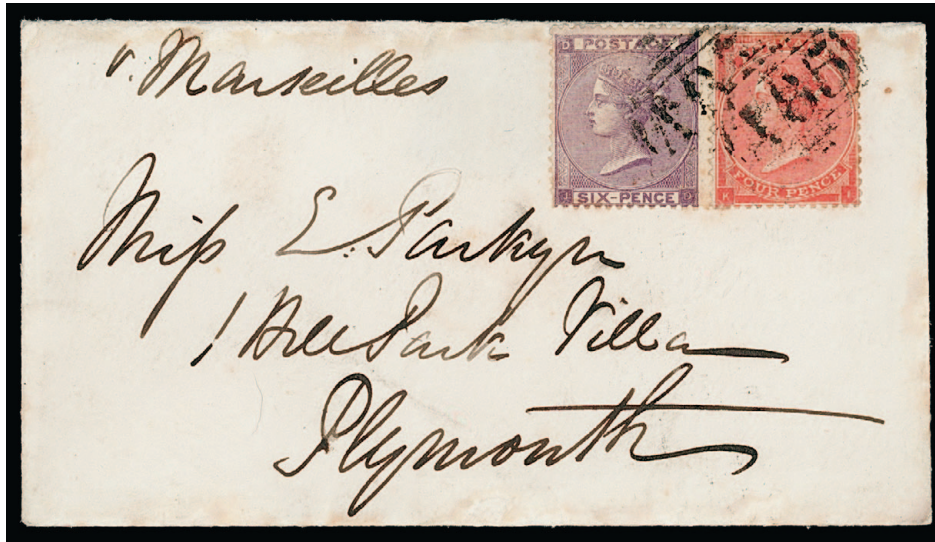 v. Marseilles
D POSTAGE
SIX-PENCE
FOUR PENCE
K
185
Miss E. Parkyn
1 Hill Park Villa
Plymouth